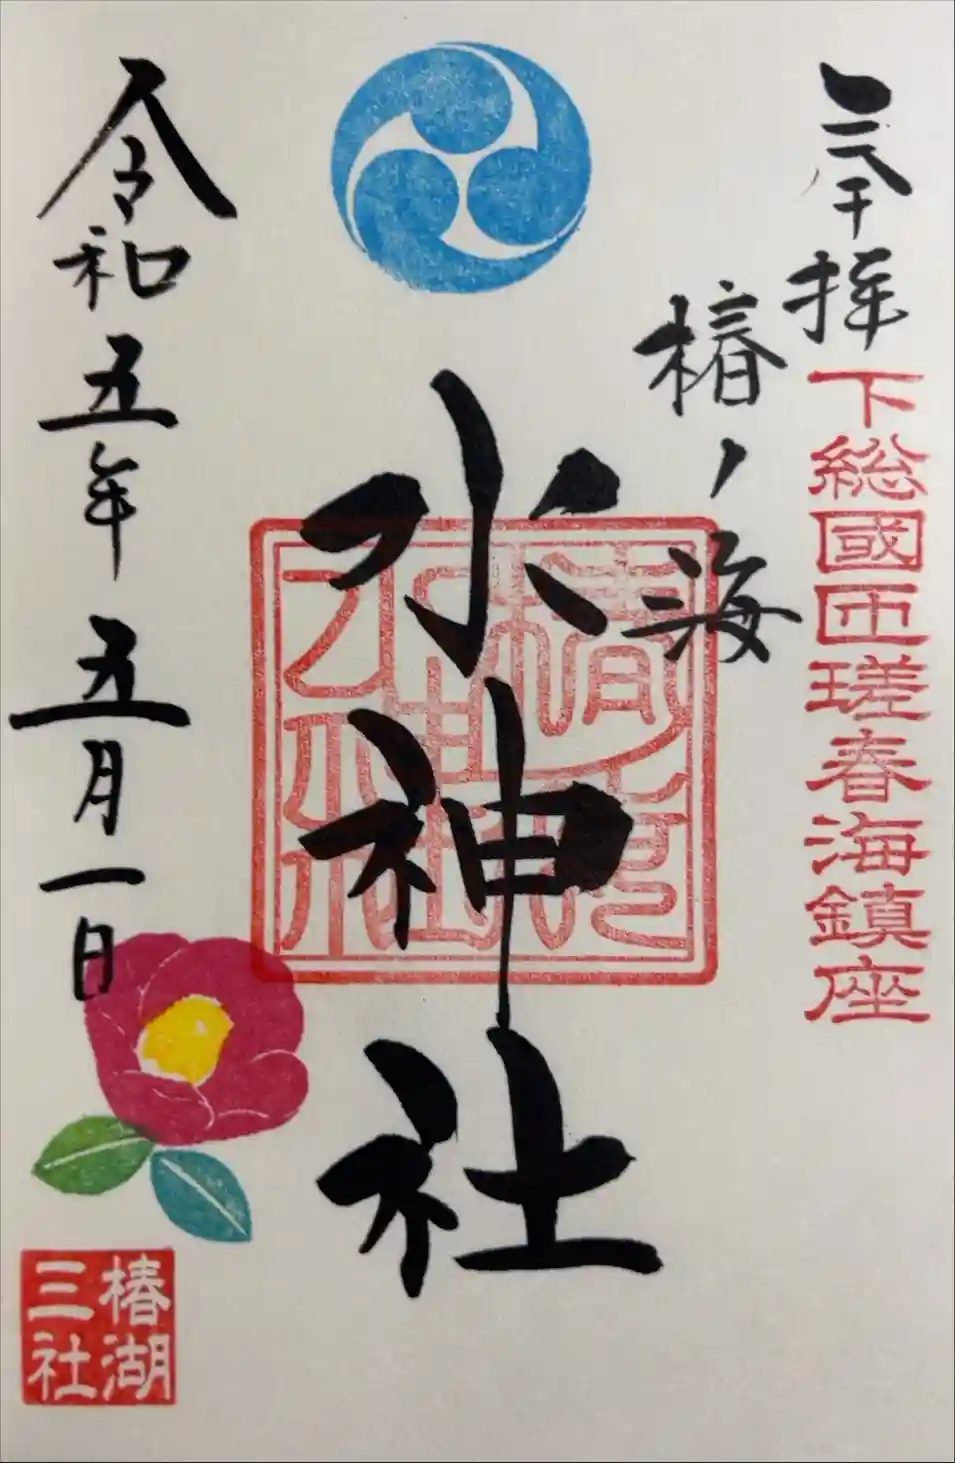 奉拝
下総國匝瑳春海鎮座
椿ノ海
水神社
令和五年五月一日
椿湖
三社